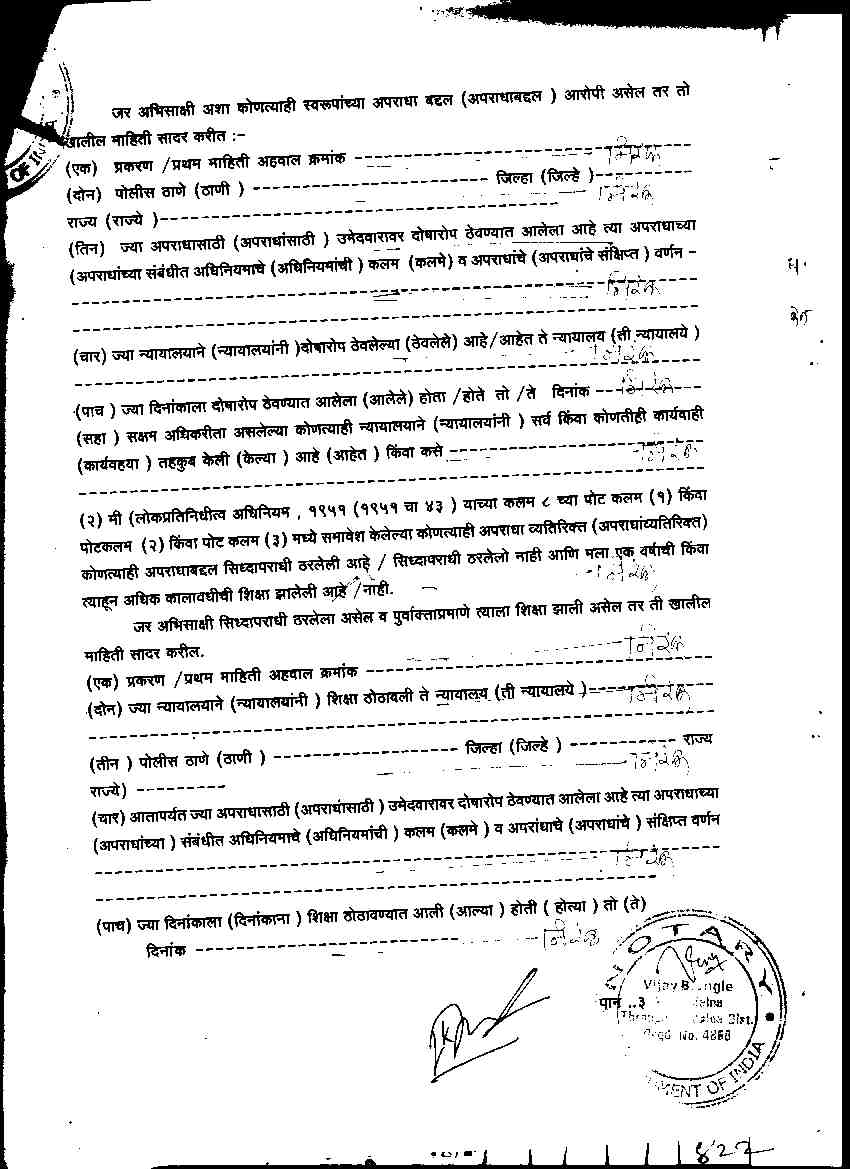 जर अभिसाक्षी अशा कोणत्याही स्वरूपांच्या अपराधा बद्दल (अपराधाबद्दल ) आरोपी असेल तर तो
खालील माहिती सादर करीत :-
(एक) प्रकरण /प्रथम माहिती अहवाल क्रमांक ---------- निरंक
(दोन) पोलीस ठाणे (ठाणी ) ---------- जिल्हा (जिल्हे )---------- निरंक
राज्य (राज्ये )----------
(तिन) ज्या अपराधासाठी (अपराधांसाठी ) उमेदवारावर दोषारोप ठेवण्यात आलेला आहे त्या अपराधाच्या
(अपराधांच्या संबंधीत अधिनियमाचे (अधिनियमांची ) कलम (कलमे) व अपराधांचे (अपराधांचे संक्षिप्त ) वर्णन -
---------- निरंक
(चार) ज्या न्यायालयाने (न्यायालयांनी )दोषारोप ठेवलेल्या (ठेवलेले) आहे/आहेत ते न्यायालय (ती न्यायालये )
---------- निरंक
(पाच ) ज्या दिनांकाला दोषारोप ठेवण्यात आलेला (आलेले) होता /होते तो /ते दिनांक ---------- निरंक
(सहा ) सक्षम अधिकरीता असलेल्या कोणत्याही न्यायालयाने (न्यायालयांनी ) सर्व किंवा कोणतीही कार्यवाही
(कार्यवहया ) तहकुब केली (केल्या ) आहे (आहेत ) किंवा कसे ---------- निरंक
(२) मी (लोकप्रतिनिधीत्व अधिनियम , १९५१ (१९५१ चा ४३ ) याच्या कलम ८ च्या पोट कलम (१) किंवा
पोटकलम (२) किंवा पोट कलम (३) मध्ये समावेश केलेल्या कोणत्याही अपराधा व्यतिरिक्त (अपराधांव्यतिरिक्त)
कोणत्याही अपराधाबद्दल सिध्दापराधी ठरलेली आहे / सिध्दापराधी ठरलेलो नाही आणि मला एक वर्षाची किंवा
त्याहून अधिक कालावधीची शिक्षा झालेली आहे /नाही. निरंक
जर अभिसाक्षी सिध्दापराधी ठरलेला असेल व पुर्वाक्ताप्रमाणे त्याला शिक्षा झाली असेल तर ती खालील
माहिती सादर करील.
(एक) प्रकरण /प्रथम माहिती अहवाल क्रमांक ---------- निरंक
(दोन) ज्या न्यायालयाने (न्यायालयांनी ) शिक्षा ठोठावली ते न्यायालय (ती न्यायालये )---------- निरंक
(तीन ) पोलीस ठाणे (ठाणी ) ---------- जिल्हा (जिल्हे ) ---------- राज्य
राज्ये) ---------- निरंक
(चार) आतापर्यत ज्या अपराधासाठी (अपराधांसाठी ) उमेदवारावर दोषारोप ठेवण्यात आलेला आहे त्या अपराधाच्या
(अपराधांच्या ) संबंधीत अधिनियमाचे (अधिनियमांची ) कलम (कलमे ) व अपरांधाचे (अपराधांचे ) संक्षिप्त वर्णन
---------- निरंक
(पाच) ज्या दिनांकाला (दिनांकाना ) शिक्षा ठोठावण्यात आली (आल्या ) होती ( होत्या ) तो (ते)
दिनांक ---------- निरंक
NOTARY
Vijay
पान ..३
Dist.
No.
OF INDIA
४२२